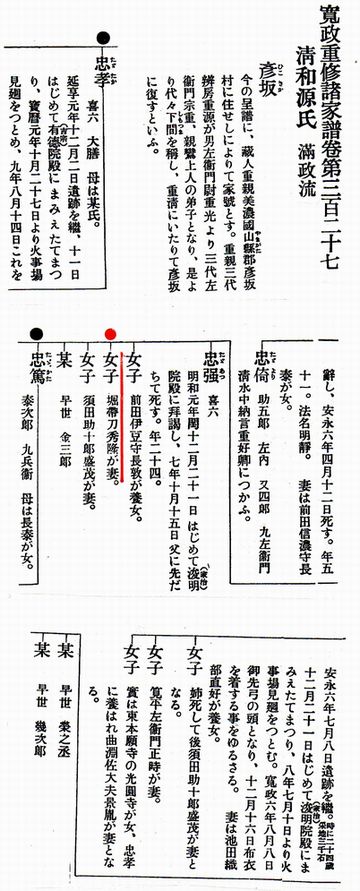 寛政重修諸家譜巻第三百二十七
清和源氏 満政流
彦坂
ひこさか
今の呈譜に、蔵人重親美濃國山縣郡彦坂
やまがた
村に住せしによりて家號とす。重親三代
辨房重源が男左衛門尉重光より三代左
衛門宗重、親鸞上人の弟子となり、是よ
り代々下間を稱し、重清にいたりて彦坂
に復すといふ。
忠孝
たゞたか
喜六 大膳 母は某氏。
延享元年十二月二日遺跡を繼、十一日
はじめて有德院殿にまみえたてまつ
(吉宗)
り、寶暦元年十月二十七日より火事場
見廻をつとめ、九年八月十四日これを
辭し、安永六年四月十二日死す。年五
十一。法名明靜。 妻は前田信濃守長
泰が女。
忠倚
たゞより
助五郎 左内 又四郎 九左衛門
清水中納言重好卿につかふ。
忠强
たゞかつ
喜六
明和元年閏十二月二十一日はじめて浚明
(家治)
院殿に拜謁し、七年十月十五日父に先だ
ちて死す。年二十四。
女子 前田伊豆守長敦が養女。
女子 堀帶刀秀隆が妻。
女子 須田助十郎盛茂が妻。
某 早世 金三郎
忠篤
泰次郎 九兵衛 母は長泰が女。
安永六年七月八日遺跡を繼。時に二十四歳
采地三千石
十二月二十一日はじめて浚明院殿にま
(家治)
みえたてまつり、八年七月十日より火
事場見廻をつとむ。寛政六年八月八日
御先弓の頭となり、十二月十六日布衣
を着する事をゆるさる。 妻は池田織
部直好が養女。
女子 姉死して後須田助十郎盛茂が妻と
なる。
女子 筧平左衛門正時が妻。
女子 實は東本願寺の光圓寺が女、忠孝
に養はれ曲淵佐大夫景胤が妻とな
る。
某 早世 粂之丞
某 早世 幾次郎